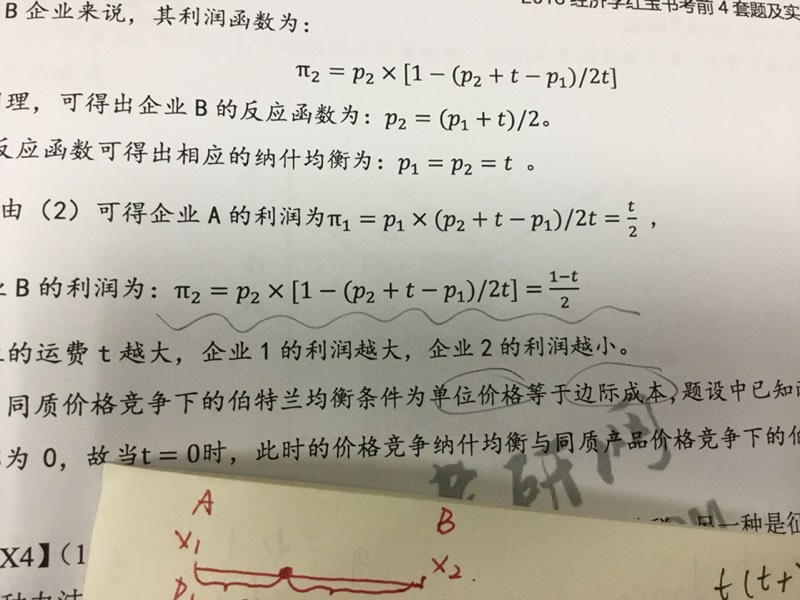 2018 经济学红宝书考前4套题及实
B 企业来说，其利润函数为：
π₂ = p₂ × [1 − (p₂ + t − p₁)/2t]
理，可得出企业 B 的反应函数为：p₂ = (p₁ + t)/2。
反应函数可得出相应的纳什均衡为：p₁ = p₂ = t 。
由（2）可得企业 A 的利润为π₁ = p₁ × (p₂ + t − p₁)/2t = t/2 ，
业 B 的利润为：π₂ = p₂ × [1 − (p₂ + t − p₁)/2t] = (1−t)/2
的运费 t 越大，企业 1 的利润越大，企业 2 的利润越小。
同质价格竞争下的伯特兰均衡条件为单位价格等于边际成本，题设中已知
为 0，故当t = 0时，此时的价格竞争纳什均衡与同质产品价格竞争下的伯
研网
另一种是征
X4】（1
A
B
X₁
X₂
P₁
t(t+